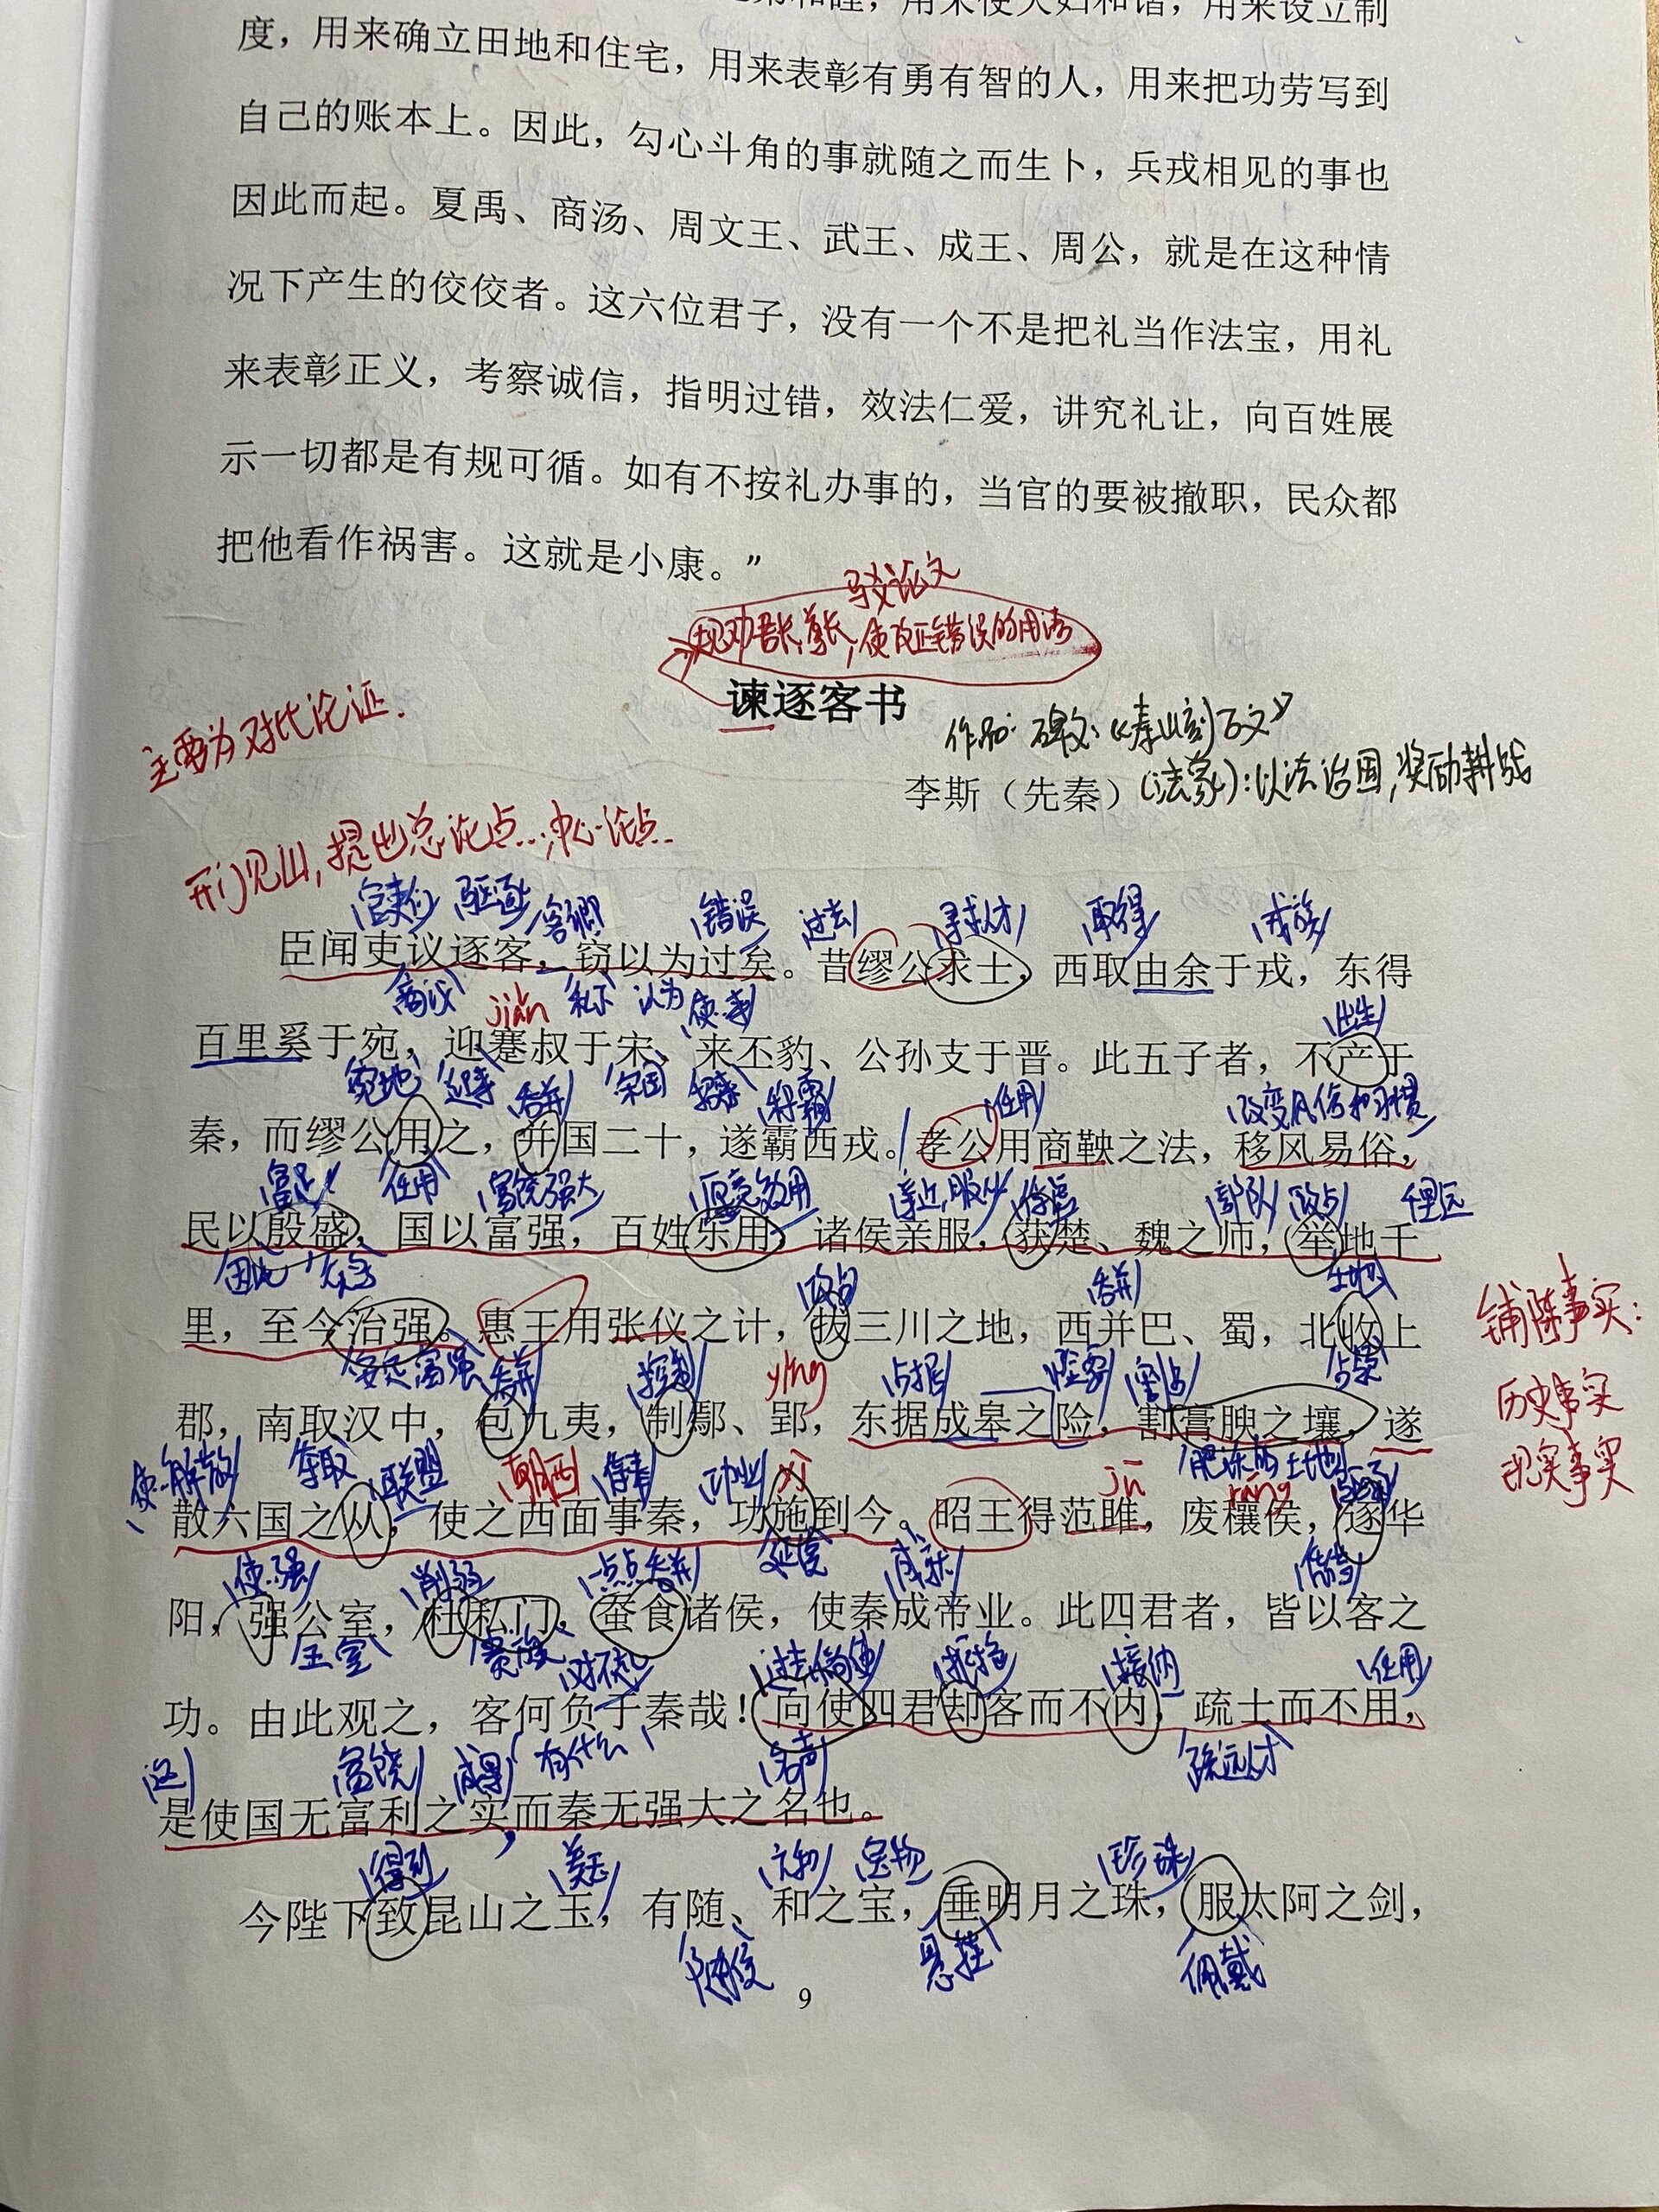 度，用来确立田地和住宅，用来表彰有勇有智的人，用来把功劳写到
自己的账本上。因此，勾心斗角的事就随之而生卜，兵戎相见的事也
因此而起。夏禹、商汤、周文王、武王、成王、周公，就是在这种情
况下产生的佼佼者。这六位君子，没有一个不是把礼当作法宝，用礼
来表彰正义，考察诚信，指明过错，效法仁爱，讲究礼让，向百姓展
示一切都是有规可循。如有不按礼办事的，当官的要被撤职，民众都
把他看作祸害。这就是小康。”
驳论文
规劝君长、尊长，使改正错误的用语
谏逐客书
主要为对比论证.
作品: 碑文:《泰山刻石文》
李斯（先秦） (法家):以法治国,奖励耕战
开门见山,提出总论点..,中心论点.
官吏们 驱逐 客卿 错误 过去 寻求人才 取得 戎族
臣闻吏议逐客，窃以为过矣。昔缪公求士，西取由余于戎，东得
商议 jiǎn 私下 认为 使..来 出生
百里奚于宛，迎蹇叔于宋，来丕豹、公孙支于晋。此五子者，不产于
宛地 迎来 吞并 宋国 招来 称霸 任用 改变风俗和习惯
秦，而缪公用之，并国二十，遂霸西戎。孝公用商鞅之法，移风易俗，
富足 任用 富饶强大 愿意效用 亲近,服从 俘虏 部队 攻占 千里远
民以殷盛，国以富强，百姓乐用，诸侯亲服，获楚、魏之师，举地千
因此 攻占 吞并 土地
里，至今治强。惠王用张仪之计，拔三川之地，西并巴、蜀，北收上
铺陈事实:
安定富强 吞并 控制 yǐng 占据 险要 割占 占领
郡，南取汉中，包九夷，制鄢、郢，东据成皋之险，割膏腴之壤，遂
历史事实
使..解散 夺取 联盟 朝西 侍奉 功业 yì jū 肥沃的土地 ráng
现实事实
散六国之从，使之西面事秦，功施到今。昭王得范雎，废穰侯，逐华
使..强 削弱 一点点吞并 延续 成就
阳，强公室，杜私门，蚕食诸侯，使秦成帝业。此四君者，皆以客之
王室 贵族 对不起 过去,倘使 拒绝 接纳 任用
功。由此观之，客何负于秦哉！向使四君却客而不内，疏士而不用，
这 富饶 成果 有什么 名声 疏远人才
是使国无富利之实，而秦无强大之名也。
得到 美玉 宝物 珍珠
今陛下致昆山之玉，有随、和之宝，垂明月之珠，服太阿之剑，
随侯 悬挂 佩戴
9